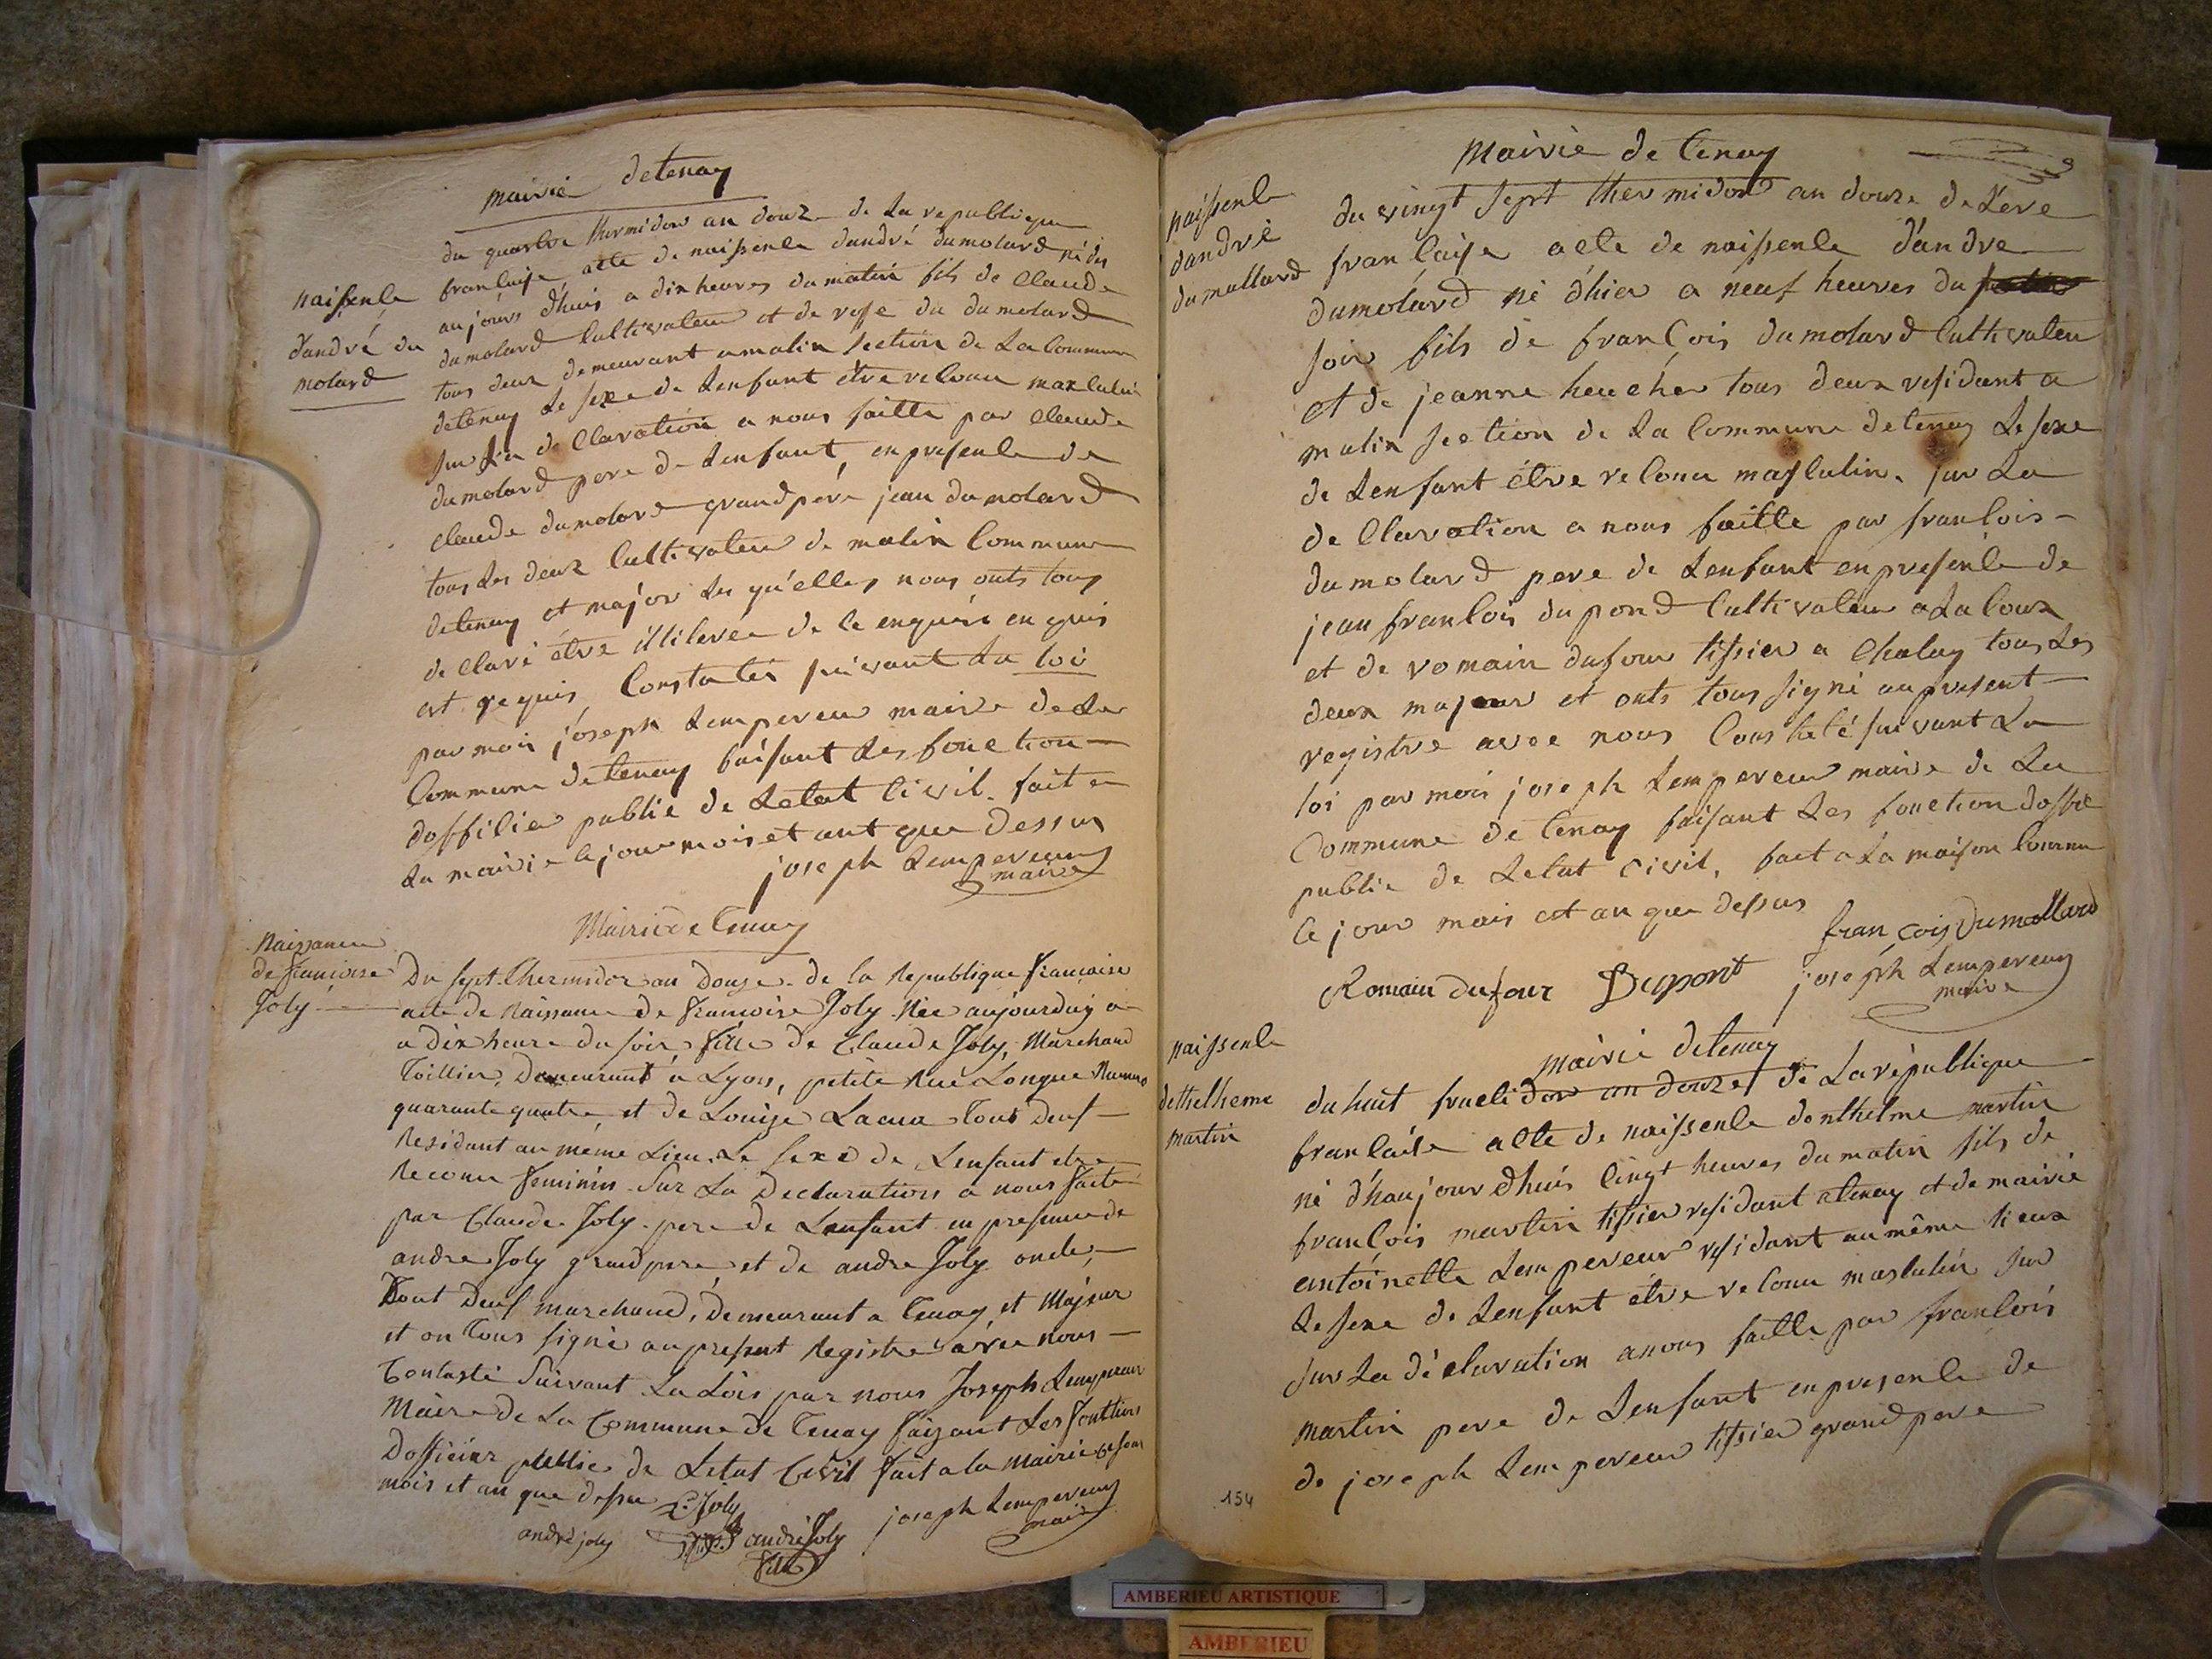 mairie detenay
naissence
dandré du
molard
du quartre thermidor an douze de La republique
francaise acte de naissence dandré dumolard né des
aujours dhuis a dix heures du matin fils de Claude
dumolard Cultivateur et de rose du dumolard
tous deux demeurant a malix section de La Commune
detenay Le sexe de Lenfant être reconu masculin
sur La de Claration a nous faitte par Claude
dumolard pere de Lenfant, en presence de
Claude dumolard grandpère jean dumolard
tous Les deux Cultivateur de malix Commune
detenay et major Les qu'elles nous onts tous
de Claré être illiterée de ce enquéri en quis
et requis Constatés suivant La loi
par moi joseph Lempereur maire de La
Commune detenay faisant Les fonction
dofficier public de Letat Civil. fait a
La mairie le jour mois et ant que dessus
joseph Lempereur
maire
Mairie de Tenay
Naissance
de francoise
Joly
Du sept. Thermidor an Douze de la Republique francaise
acte de Naissance de francoise Joly Née aujourduy a
a dix heure du soir fille de Claude Joly, Marchand
Toillier, Demeurant à Lyon, petite Rue Longue Numero
quarante quatre et de Louise Lacua Tous Deuf
Residant au même Lieu. Le sexe de Lenfant etre
Reconu feminin. Sur La Declaration a nous faite
par Claude Joly pere de Lenfant en presence de
andre Joly grandpere et de andre Joly oncle,
Tout Deuf marchand, Demeurant a Tenay et Majeur
et on Tous signé au present Registre avec nous
Contasté Suivant La Lois par nous Joseph Lempereur
Maire de La Commune de Tenay faizant Les fonctions
Dofficier public de Letat Civil fait a la Mairie Ce Jour
mois et an que dessu
C. Joly
andré joly
andré Joly
fils
joseph Lempereur
maire
Mairie de tenay
naissence
dandré
dumollard
du vingt sept thermidor an douze de Lere
francaise acte de naissence d'andre
dumolard né d'hier a neuf heures du
soir fils de francois dumolard Cultivateu
et de jeanne heucher tous deux residant a
malix section de La Commune detenay Le sexe
de Lenfant être reconu masculin. sur La
de Claration a nous faitte par francois
dumolard pere de Lenfant en presence de
jean francois dupond Cultivateur a La Coux
et de romain dufour tissier a Chaley tous Les
deux majeur et onts tous signé au present
registre avec nous Constaté suivant La
loi par moi joseph Lempereur maire de La
Commune de tenay faisant Les fonction doffice
public de Letat Civil, fait a La maison Commu
le jour mois et an que dessus
francois Dumollard
Romain dufour Dupont joseph Lempereur
maire
mairie detenay
naissence
dethelheme
martin
du huit fructidor an douze de La république
francaise acte de naissence denthelme martin
né d'haujourdhuis Cinqt heures du matin fils de
francois martin tissier residant atenay et de mairie
antoinette Lempereur residant au même lieux
Le sexe de Lenfant être reconu masculin sur
sur La déclaration anous faitte par francois
martin pere de Lenfant en presence de
de joseph Lempereur tissier grandpere
154
AMBERIEU ARTISTIQUE
AMBERIEU